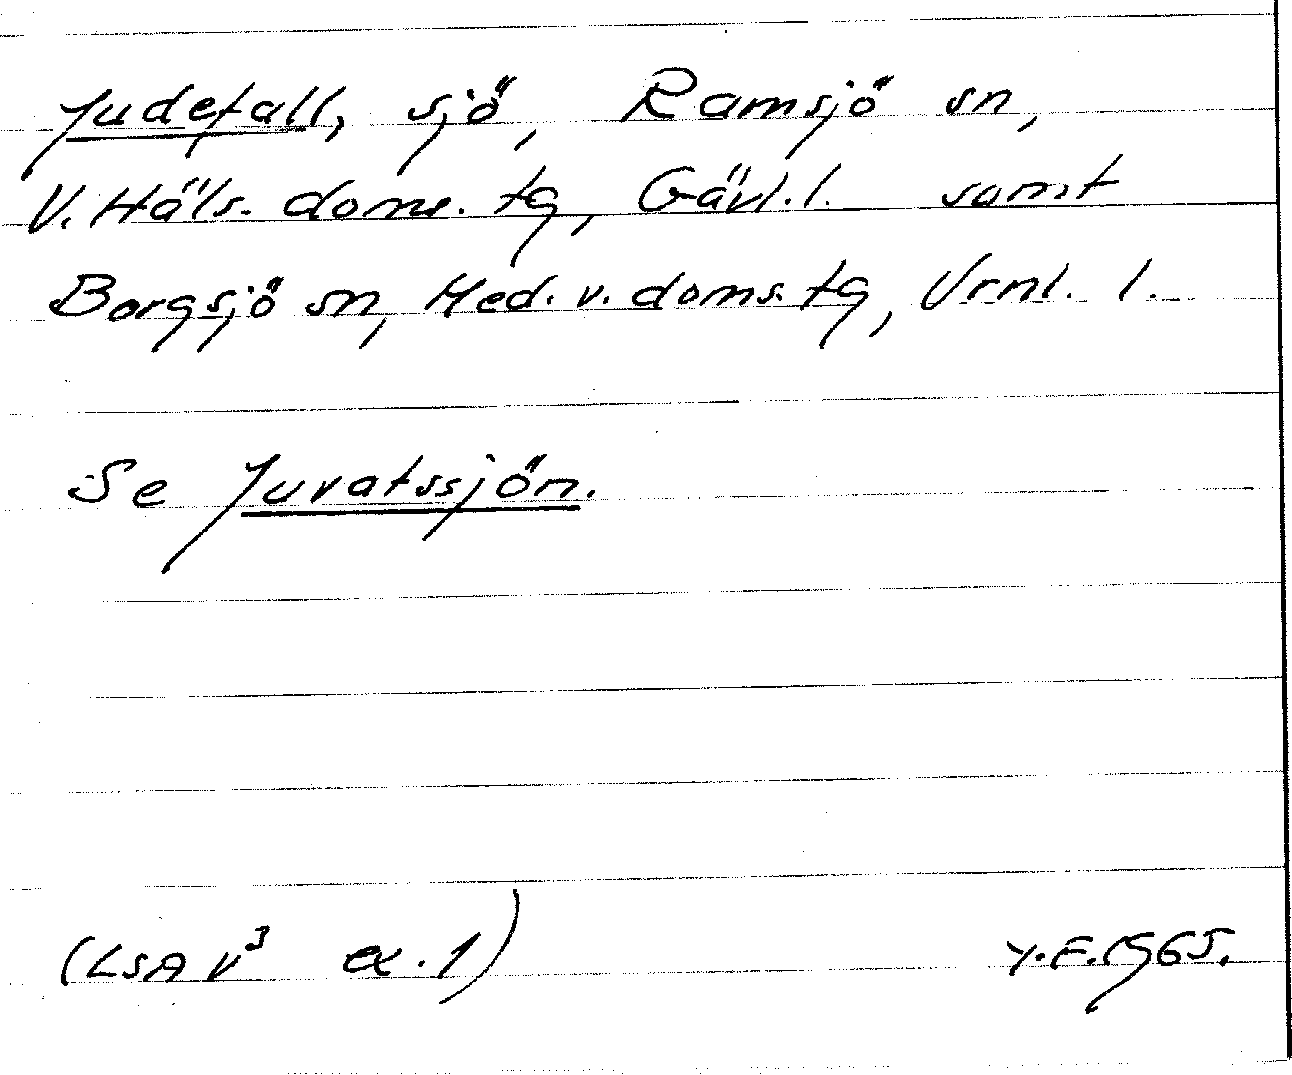 Judefall, sjö, Ramsjö sn,
V. Häls. doms. tg, Gävl. l. samt
Borgsjö sn, Med. v. doms. tg, Vrnl. l.
Se Juvatssjön.
(LSA V³ ex. 1) Y.F. 1965.